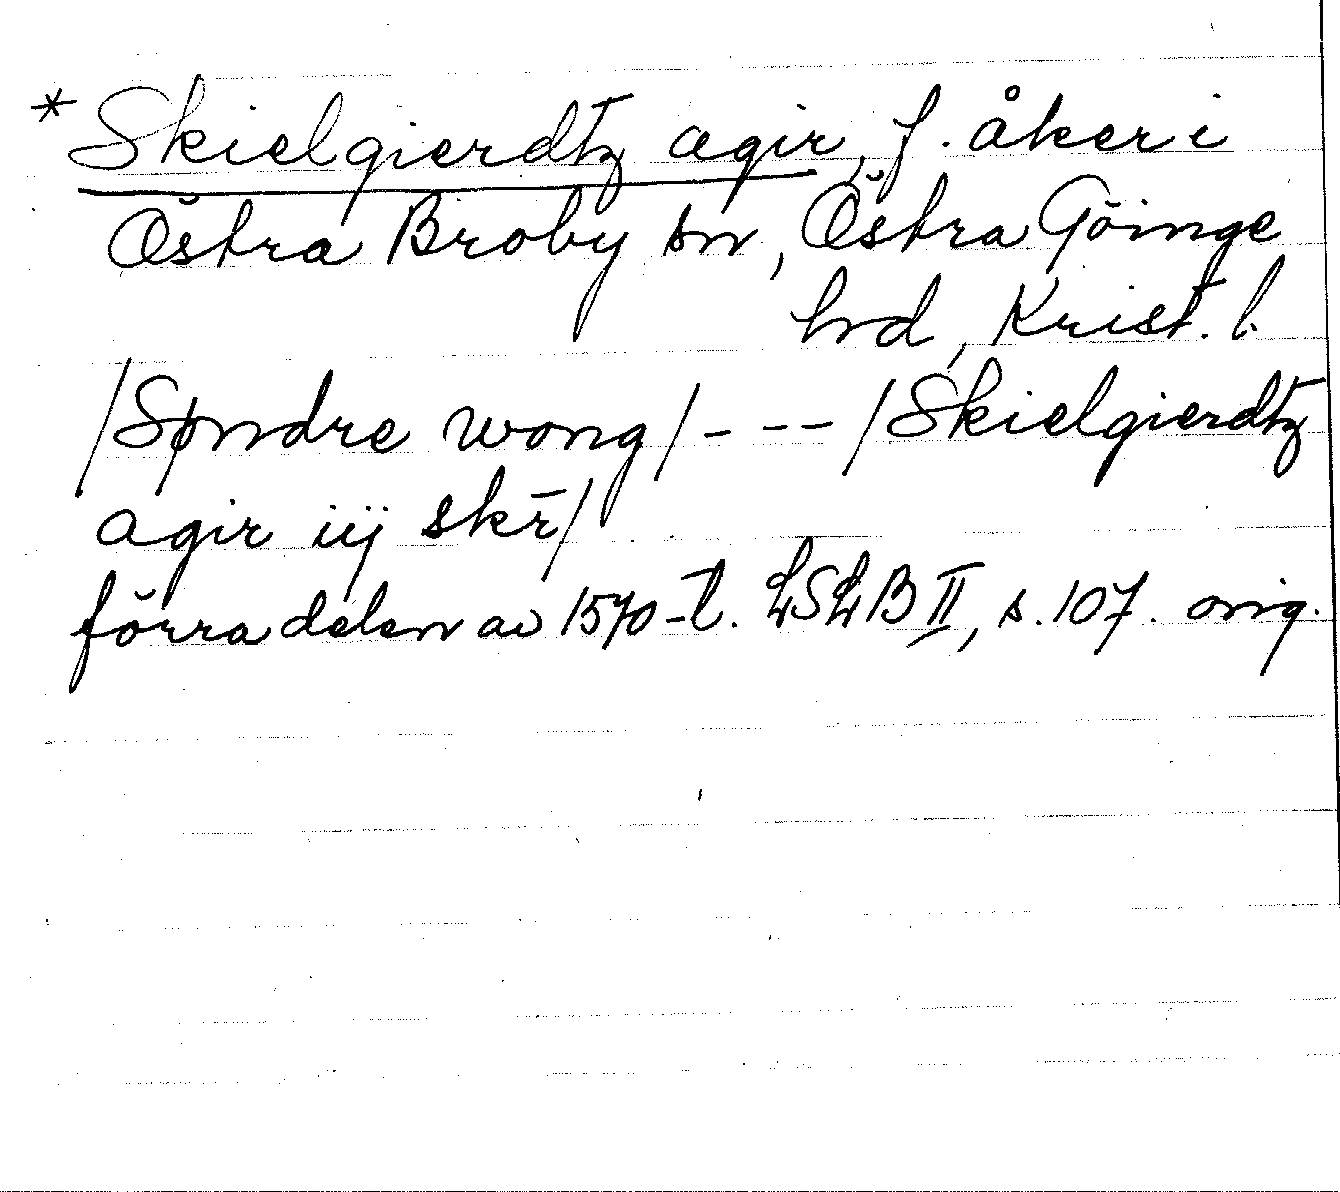 * Skielgierdtz agir, f. åker i
Östra Broby sn, Östra Göinge
hrd, Krist. l.
/Søndre wong/ - - - /Skielgierdtz
agir iij skr̄/
förra delen av 1570-t. LSLB II, s. 107. orig.